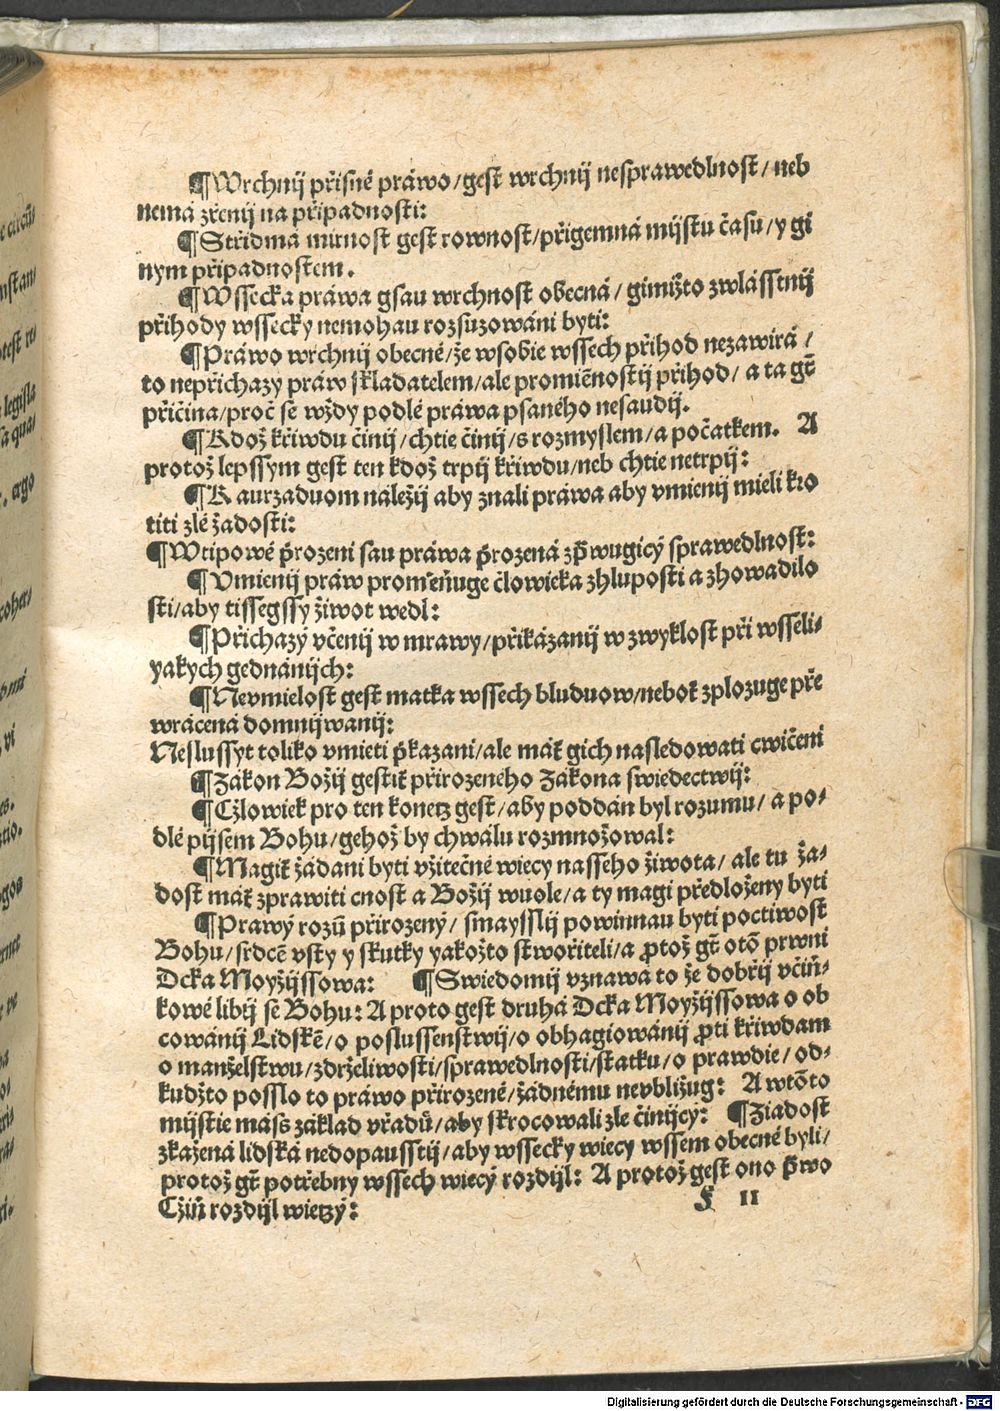 ¶Wrchnij přisné práwo/gest wrchnij nesprawedlnost/neb
nemá zřenij na připadnosti:
¶Střidmá mirnost gest rownost/přigemná mijstu času/y gi
nym připadnostem.
¶Wssecka práwa gsau wrchnost obecná/gimižto zwlásstnij
přihody wssecky nemohau rozsuzowáni byti:
¶Práwo wrchnij obecné/že wsobie wssech přihod nezawirá/
to nepřichazy práw skladatelem/ale promiēnostij přihod/a ta gt̃
přičina/proč se wždy podlé práwa psaného nesaudij.
¶Kdož křiwdu činij/chtie činij/s rozmyslem/a počatkem. A
protož lepssym gest ten kdož trpij křiwdu/neb chtie netrpij:
¶K aurzaduom náležij aby znali práwa aby vmienij mieli kro
titi zlé žadosti:
¶Wtipowé p̃rozeni sau práwa p̃rozená zp̃wugicý sprawedlnost:
¶Vmienij práw promeňuge človieka zhluposti a zhowadilo
sti/aby tissegssy žiwot wedl:
¶Přichazý včenij w mrawy/přikázanij w zwyklost při wsseli-
yakych gednánijch:
¶Nevmielost gest matka wssech bluduow/nebot̃ zplozuge pře
wrácená domnijwanij:
Neslussyt toliko vmieti p̃kazani/ale mát̃ gich nasledowati cwičeni
¶Zákon Božij gestit̃ přirozeného Zákona swiedectwij:
¶Cžlowiek pro ten konetz gest/aby poddán byl rozumu/a po-
dlé pijsem Bohu/gehož by chwálu rozmnožowal:
¶Magit̃ žádani byti vžitečné wiecy nasseho žiwota/ale tu žá-
dost mát̃ zprawiti cnost a Božij wuole/a ty magi předloženy byti
¶Prawý rozū přirozený/smayslij powinnau byti poctiwost
Bohu/srdcē vsty y skutky yakožto stwořiteli/a p̱tož gt̃ otō prwni
Dcka Moyžijssowa: ¶Swiedomij vznawá to že dobřij včiň-
kowé libij se Bohu: A proto gest druhá Dcka Moyžijssowa o ob
cowánij Lidskē/o poslussenstwij/o obhagiowánij p̱ti křiwdam
o manželstwu/zdrželiwosti/sprawedlnosti/statku/o prawdie/od-
kudžto posslo to práwo přirozené/žádnému nevbližug: A wtōto
mijstie máss̃ základ vřadů/aby skrocowali zle činijcy: ¶Ziadost
zkažená lidská nedopausstij/aby wssecky wiecy wssem obecné byli/
protož gt̃ potřebny wssech wiecý rozdijl: A protož gest ono p̃wo
Cžiň rozdijl wietzý:
§ II
Digitalisierung gefördert durch die Deutsche Forschungsgemeinschaft - DFG